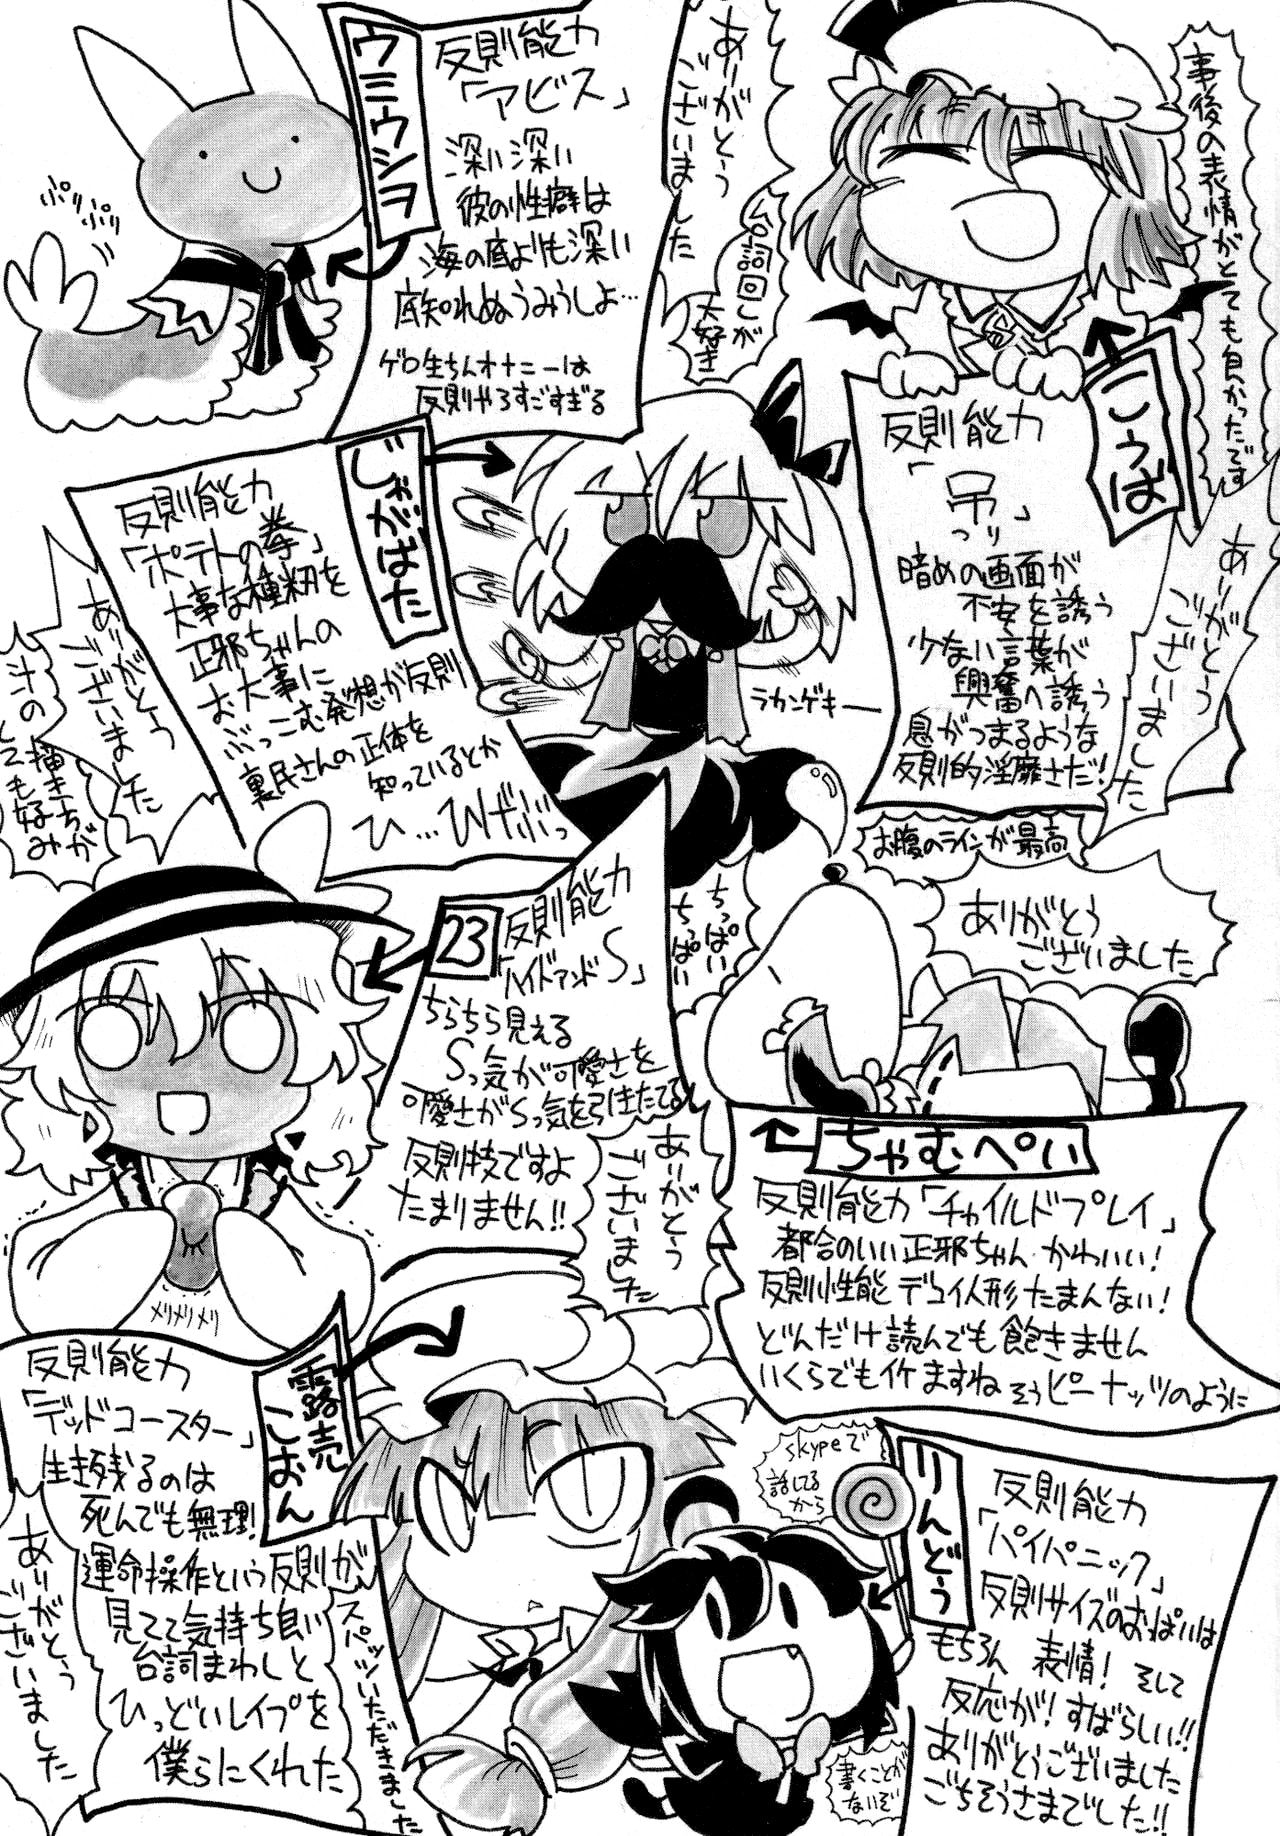 事後の表情がとても良かったです
こうば
反則能力
「吊」
つり
暗めの画面が
不安を誘う
少ない言葉が
興奮へ誘う
息がつまるような
反則的淫靡さだ!
ありがとう
ございました
お腹のラインが最高
ウミウシヲ
反則能力
「アビス」
深い深い
彼の性癖は
海の底よりも深い
底知れぬうみうしよ…
ゲロ生ちんオナニーは
反則やろすごすぎる
ぷりぷり
ありがとう
ございました
台詞回しが
大好き
じゃがばた
反則能力
「ポテトの拳」
大事な種籾を
正邪ちゃんの
お大事に
ぶっこむ発想が反則
裏民さんの正体を
知っているとか
ひ…ひげぶぶっ
ラカンゲキー
ありがとう
ございました
汁の描き方が
とても好み
23
反則能力
「ハイドアンドS」
ちらちら見える
Sっ気が可愛さを
可愛さがSっ気を引きたてる
反則技ですよ
たまりません!!
ありがとう
ございました
メリメリメリ
ちっぱい
ちっぱい
ありがとう
ございました
ちゃむぺい
反則能力「チャイルドプレイ」
都合のいい正邪ちゃん かわいい!
反則性能デコイ人形たまんない!
どんだけ読んでも飽きません
いくらでもイケますね そうピーナッツのように
露売こおん
反則能力
「デッドコースター」
生き残るのは
死んでも無理!
運命操作という反則が
見てて気持ち良い
台詞まわしと
ひっどいレイプを
僕らにくれた
ありがとう
ございました
スパッツいただきました
りんどう
反則能力
「パイパニック」
反則サイズのおっぱいは
もちろん 表情! そして
反応が! すばらしい!!
ありがとうございました
ごちそうさまでした!!
skypeで
話してる
から
書くことが
ないぞ